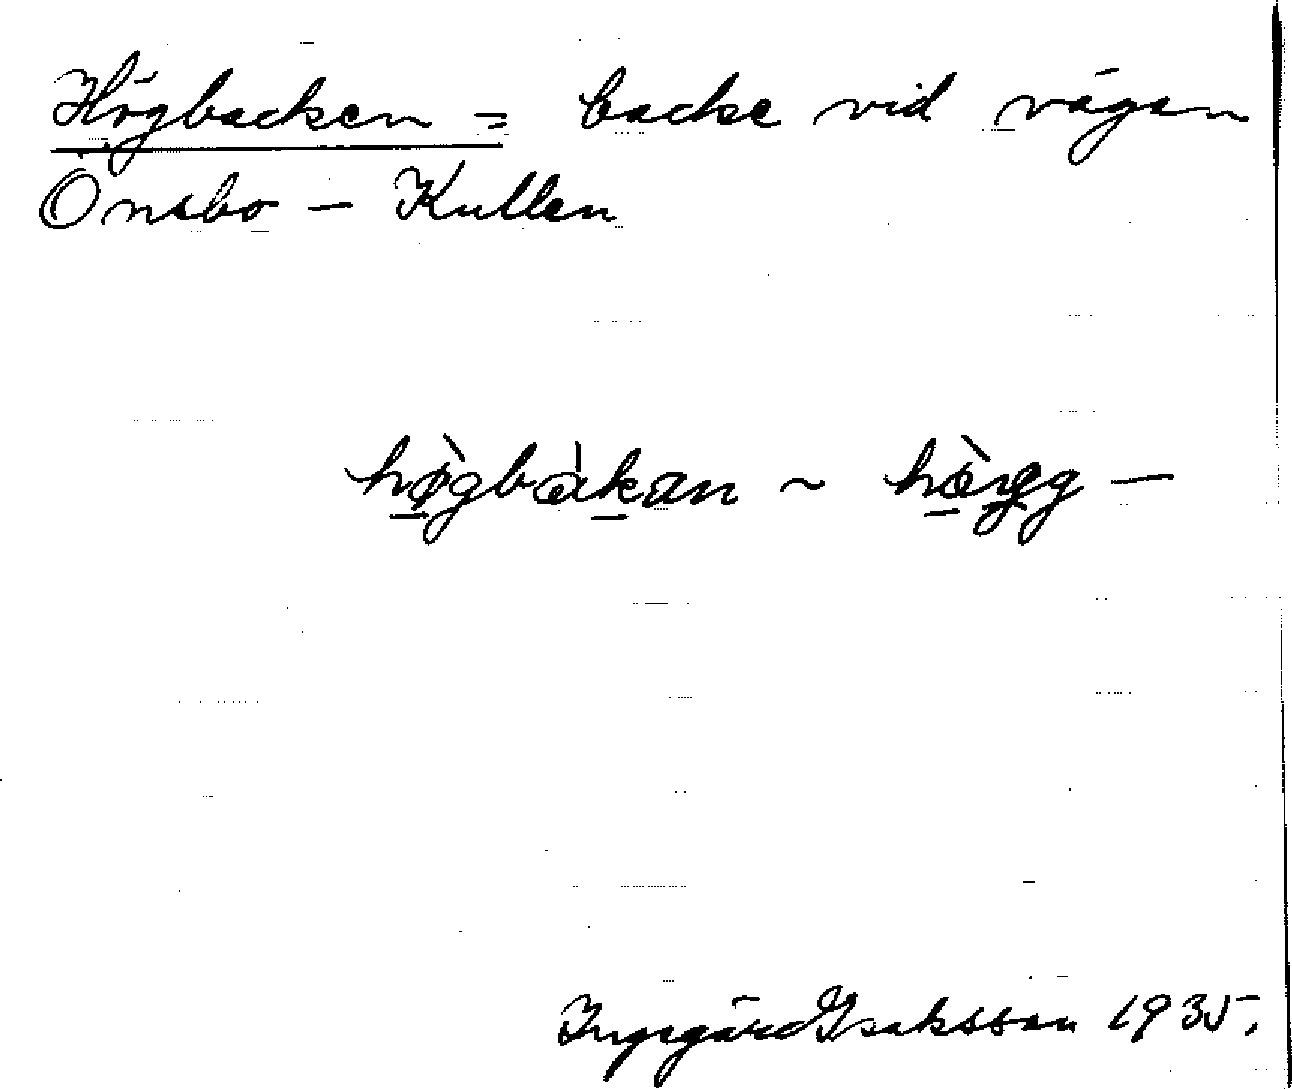 Högbacken = backe vid vägen
Önsbo – Kullen
hø̀gbàkan ~ hæ̀gg —
Ingegärd Isaksson 1935.